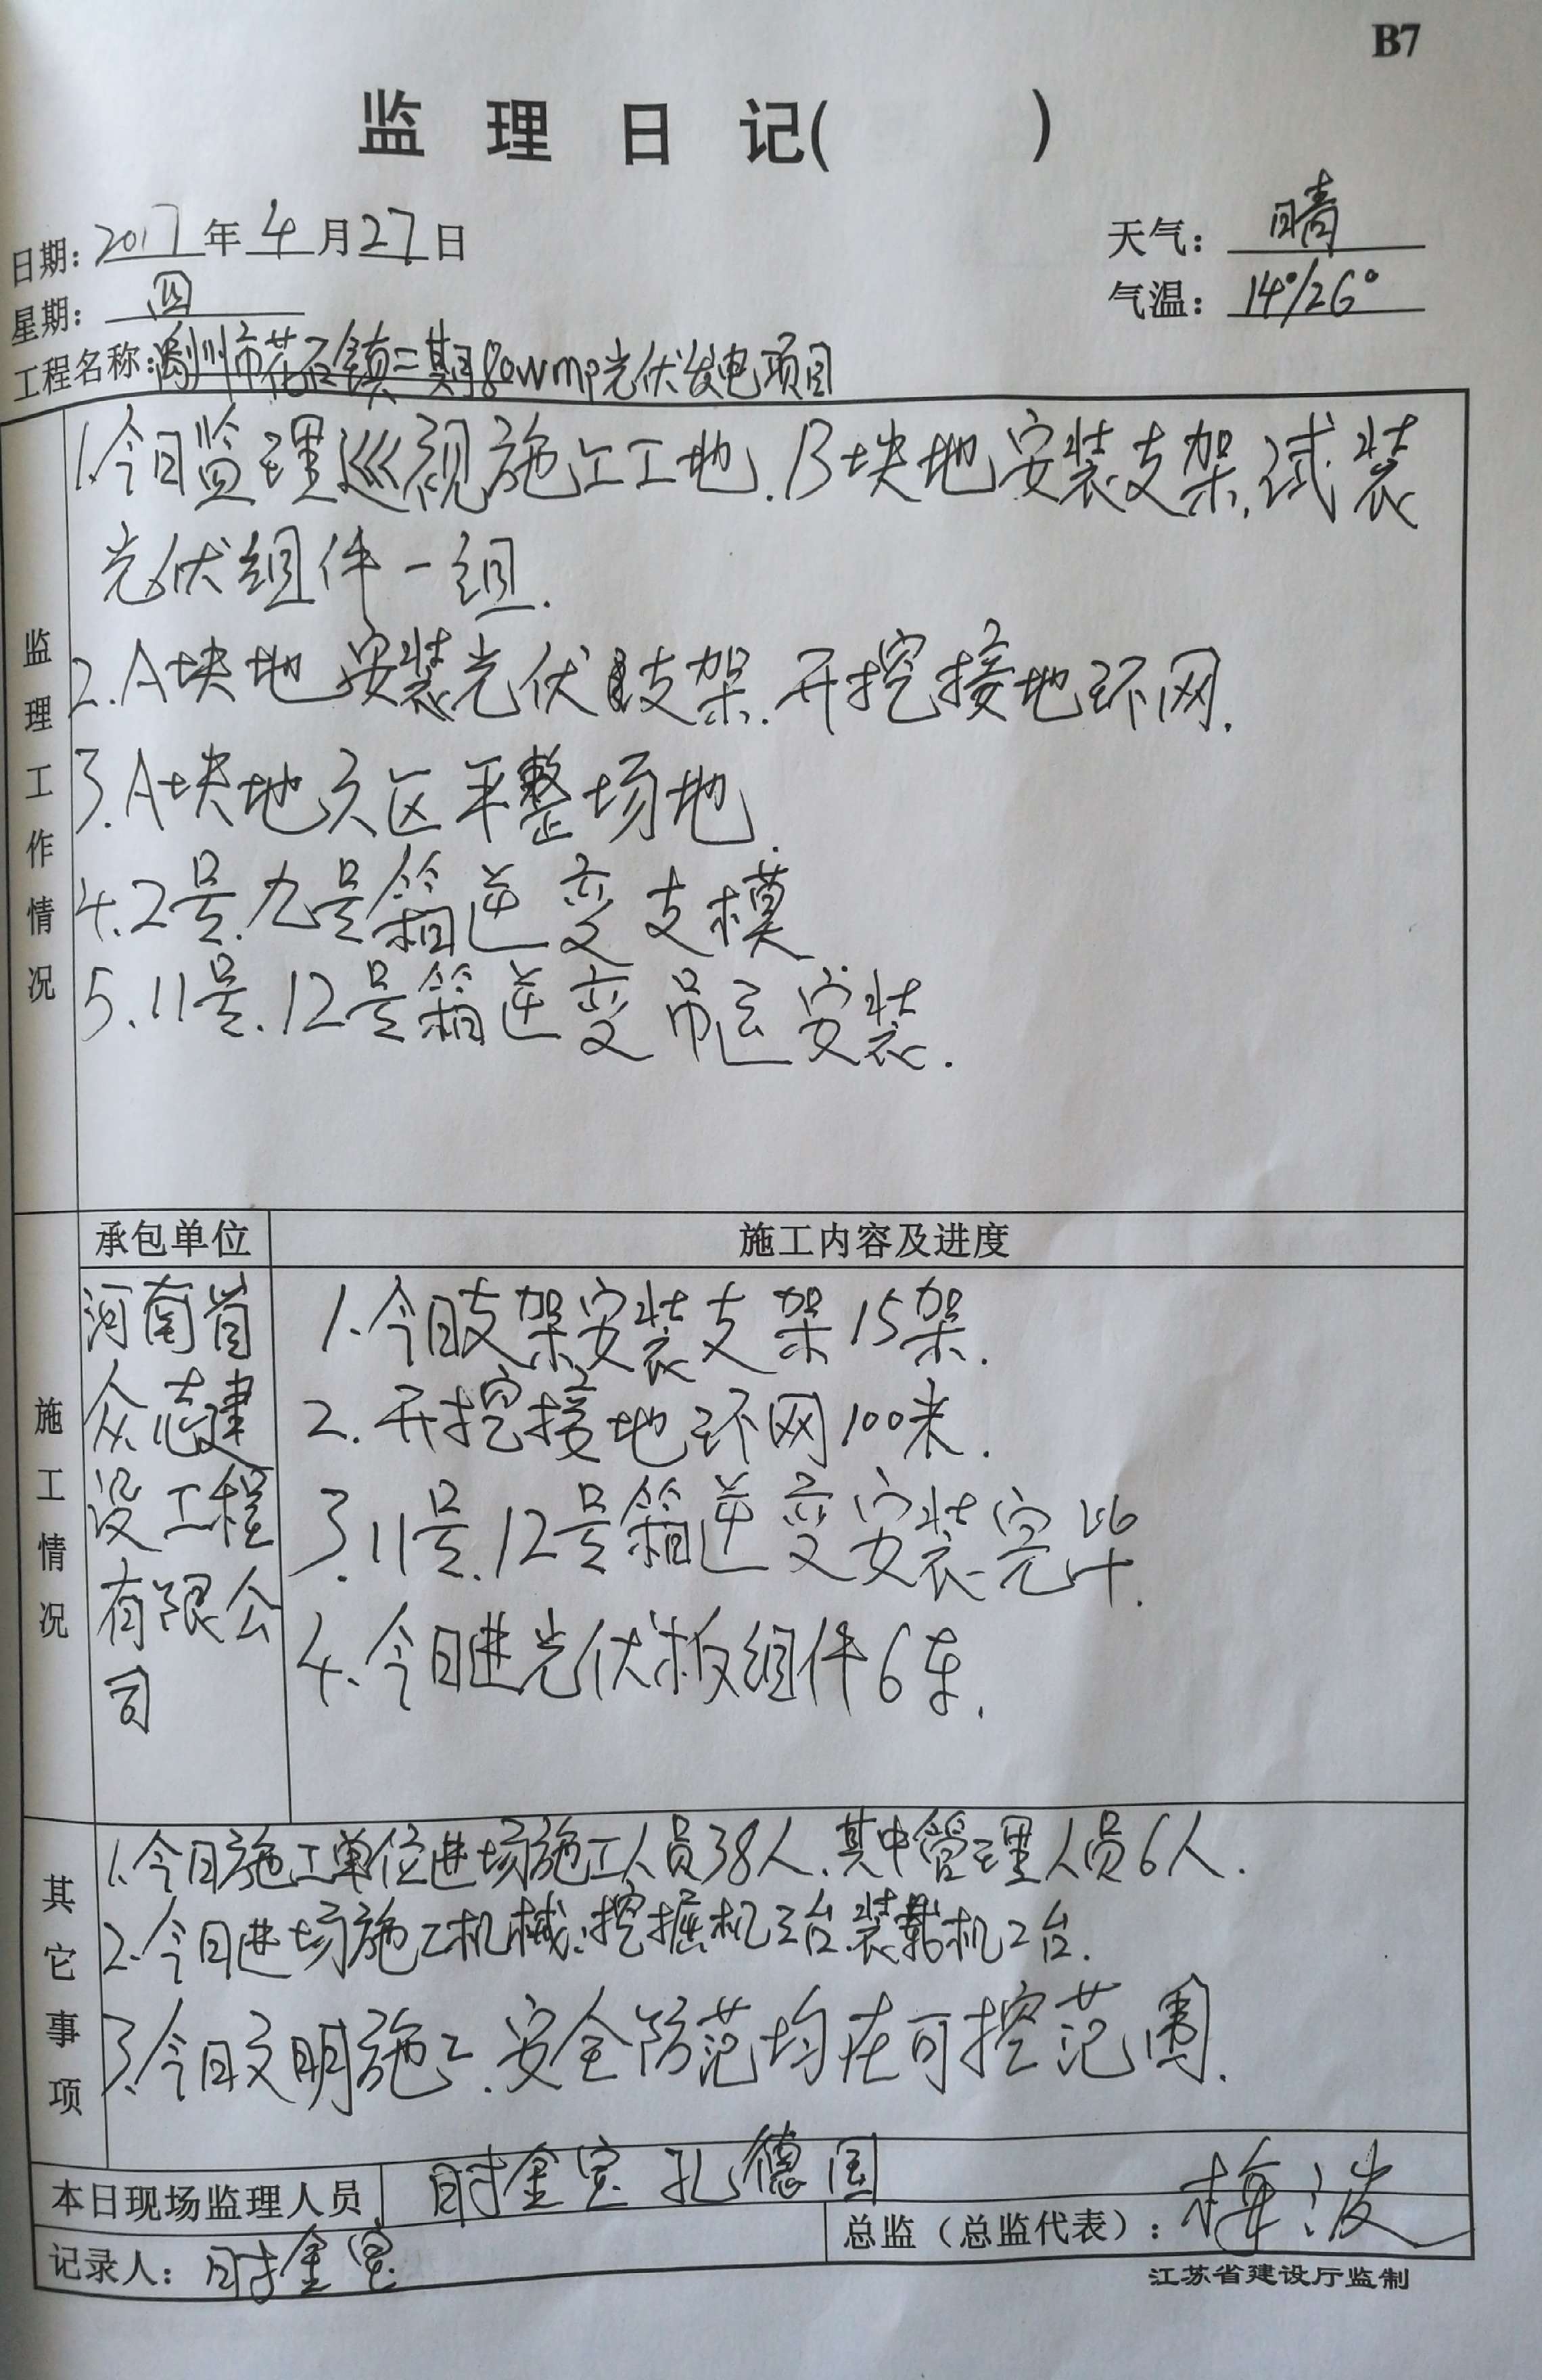 B7
监理日记(　　)
日期：2017年4月27日
天气：晴
星期：四
气温：14°/26°
工程名称：禹州市花石镇二期80wmp光伏发电项目
监理工作情况
1.今日监理巡视施工工地.B块地安装支架.试装
光伏组件一组.
2.A块地安装光伏支架.开挖接地环网.
3.A块地六区平整场地.
4.2号.九号箱逆变支模.
5.11号.12号箱逆变吊运安装.
施工情况
承包单位
施工内容及进度
河南省
众志建
设工程
有限公
司
1.今日支架安装支架15架.
2.开挖接地环网100米.
3.11号.12号箱逆变安装完毕.
4.今日进光伏板组件6车.
其它事项
1.今日施工单位进场施工人员38人.其中管理人员6人.
2.今日进场施工机械:挖掘机3台.装载机2台.
3.今日文明施工.安全防范均在可控范围.
本日现场监理人员
时金宝 孔德国
总监（总监代表）：梅波
记录人：时金宝
江苏省建设厅监制